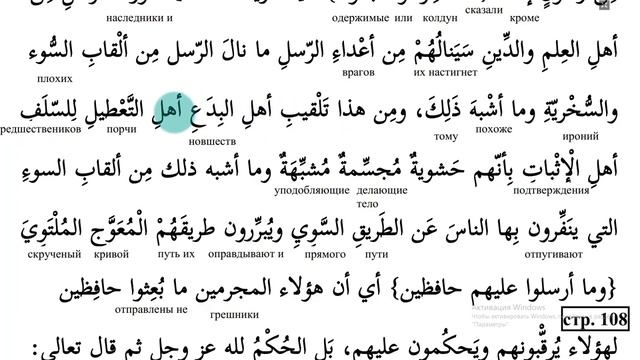 сказали
наследники и одержимые или колдун кроме
أهلِ العِلمِ والدِّينِ سَيَنالُهُمْ مِن أعْداءِ الرّسلِ ما نالَ الرّسل مِن ألْقابِ السُّوء
плохих врагов их настигнет
والسُّخْرِيّةِ وما أشْبهَ ذَلِكَ، ومِن هذا تَلْقيبِ أهلِ البِدَعِ أهلِ التَّعْطيلِ لِلسّلَفِ
редшествеников порчи новшеств тому похоже ироний
أهلِ الْإثْباتِ بِأنّهم حَشويةٌ مُجسِّمةٌ مُشبِّهَةٌ وما أشبه ذلك مِن ألقابِ السوءِ
уподобляющие делающие тело подтверждения
التي ينَفِّرون بِها الناسَ عَن الطّريقِ السَّوِيِ ويُبرِّرون طريقَهُمْ الْمُعَوَّج الْمُلْتَوِيَ
скрученый кривой путь их оправдывают и прямого пути отпугивают
{وما أرسلوا عليهم حافظين} أي أن هؤلاء المجرمين ما بُعِثوا حافِظِين
отправлены не грешники
Активация Windows
Чтобы активировать Windows,
"Параметры"
стр. 108
لهؤلاءِ يُرقِّبونهم ويَحكُمون عليهم، بَلِ الحُكْمُ لله عز وجل ثم قال تعالى: